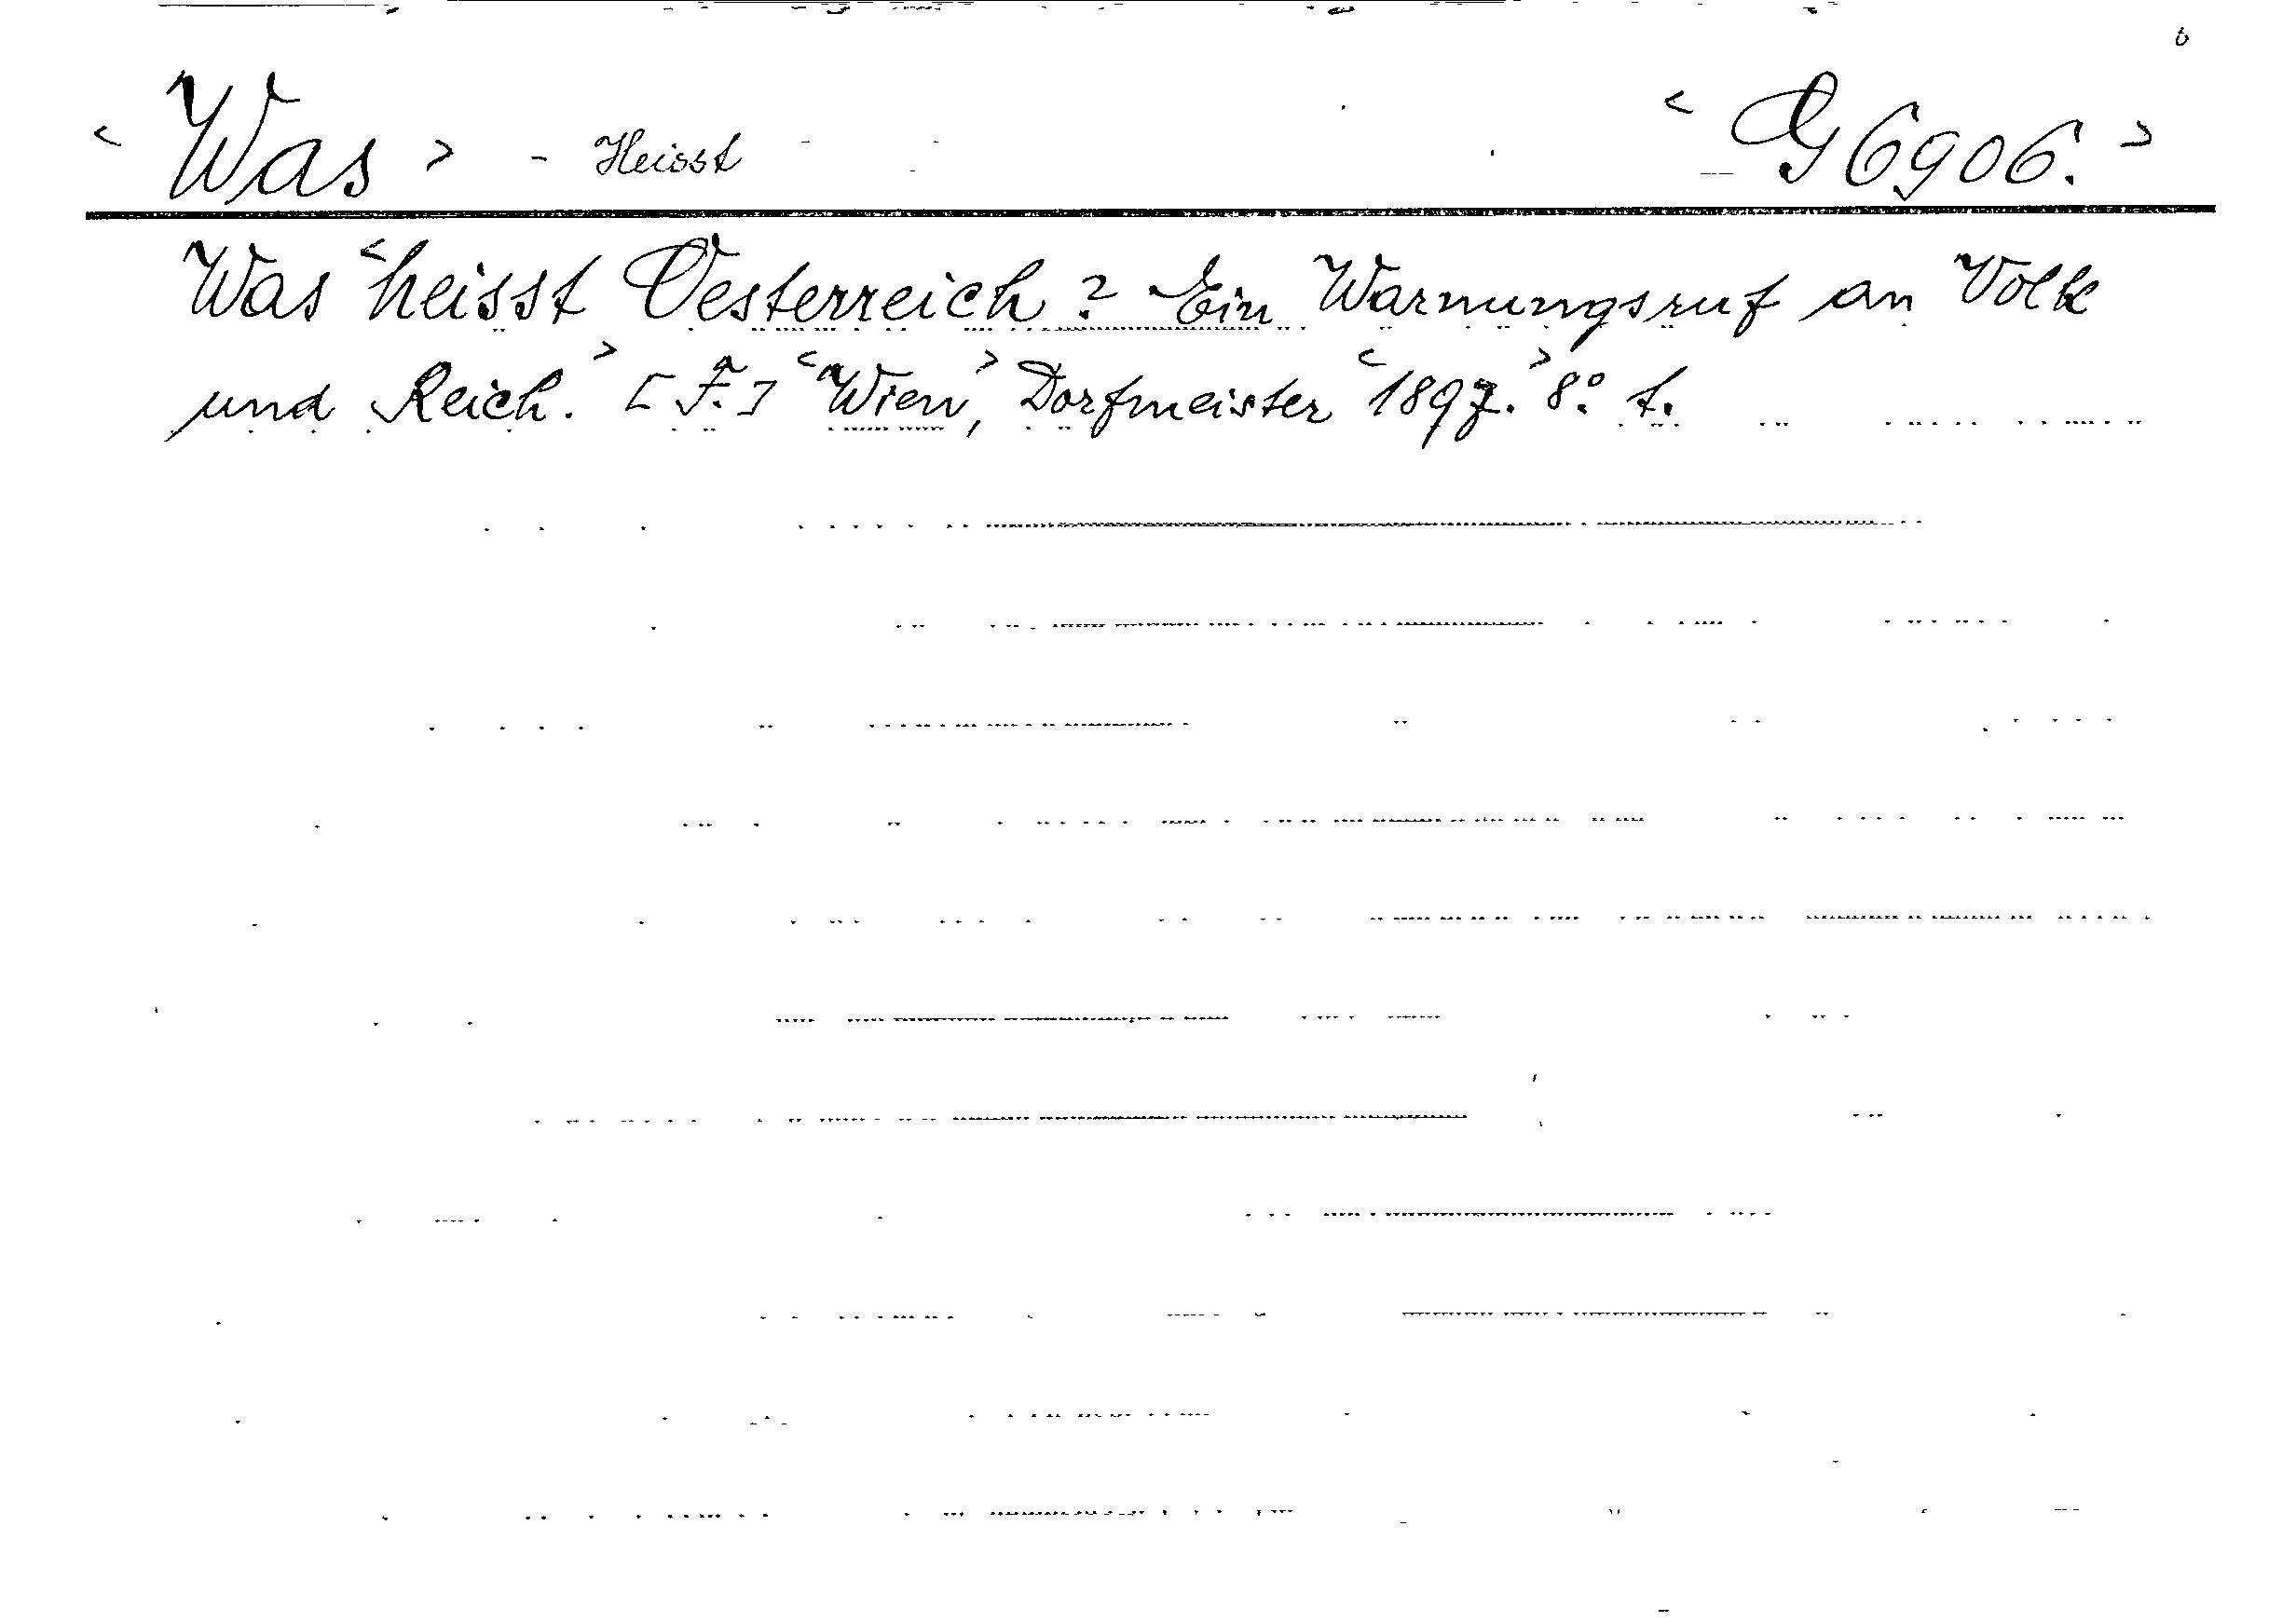 ‹ Was › - Heisst ‹ G 6906. ›
Was ‹ heisst Oesterreich? Ein Warnungsruf an Volk
und Reich. › [F.] ‹ Wien ›, Dorfmeister ‹ 1897. › 8° f.